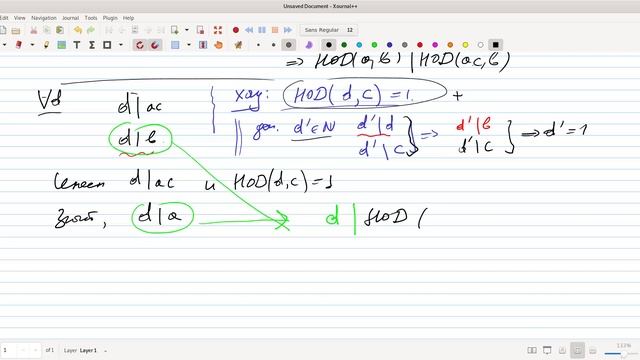 Unsaved Document - Xournal++
Edit View Navigation Journal Tools Plugin Help
Sans Regular 12
⇒ НОD(a,b) | НОD(ac,b)
∀d d|ac
хач: НОD(d,c) = 1. +
d|b
d'∈N d'|d ⇒ d'|b ⇒ d'=1
d'|c d'|c
d|ac и НОD(d,c)=1
d|a d | НОD (
1 of 1 Layer Layer 1 133%